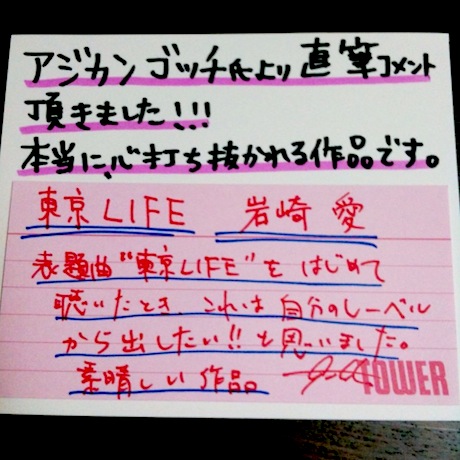 アジカンゴッチ氏より直筆コメント
頂きました!!!
本当に、心打ち抜かれる作品です。
東京LIFE 岩崎 愛
表題曲"東京LIFE"を はじめて
聴いたとき、これは自分のレーベル
から出したい!! と思いました。
素晴しい作品。
TOWER